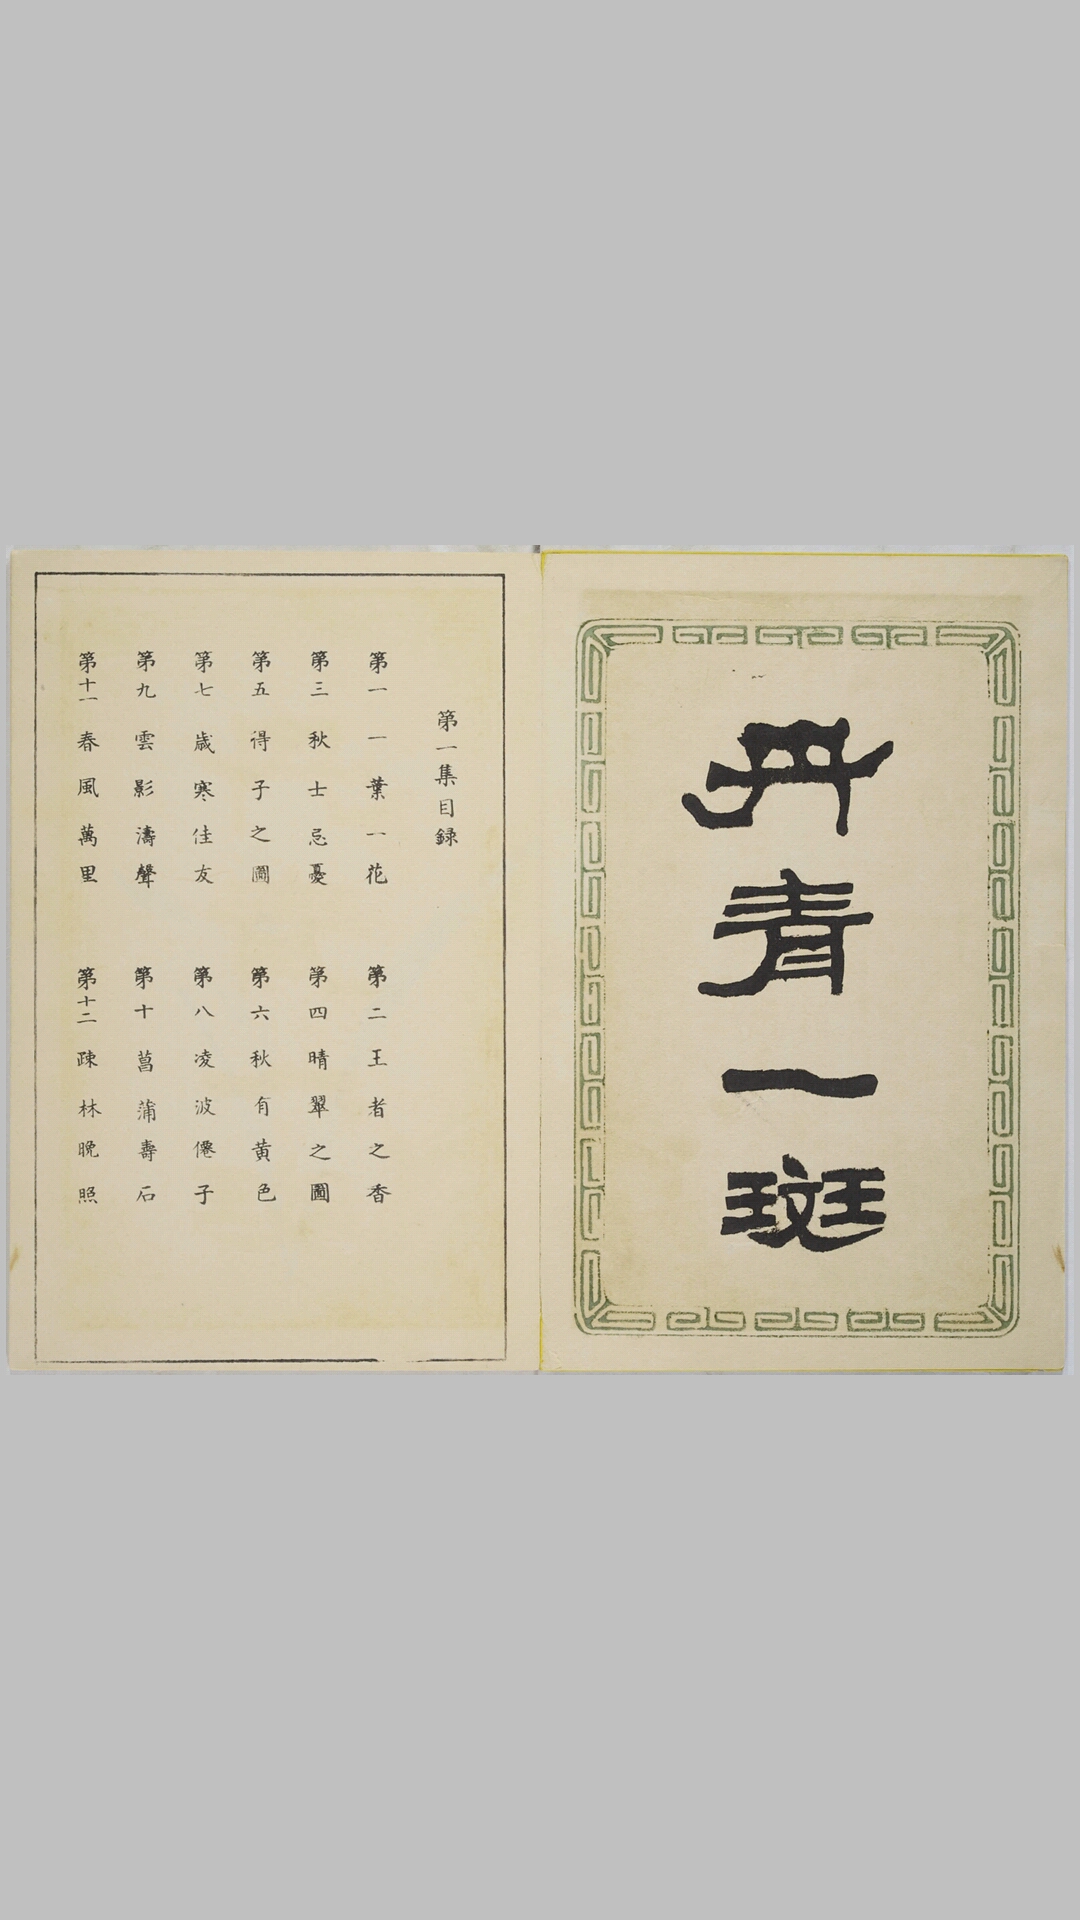 丹青一斑
第一集目録
第一 一葉一花
第二 王者之香
第三 秋士忘憂
第四 晴翠之圖
第五 得子之圖
第六 秋有黄色
第七 歳寒佳友
第八 凌波僊子
第九 雲影濤聲
第十 菖蒲壽石
第十一 春風萬里
第十二 疎林晩照